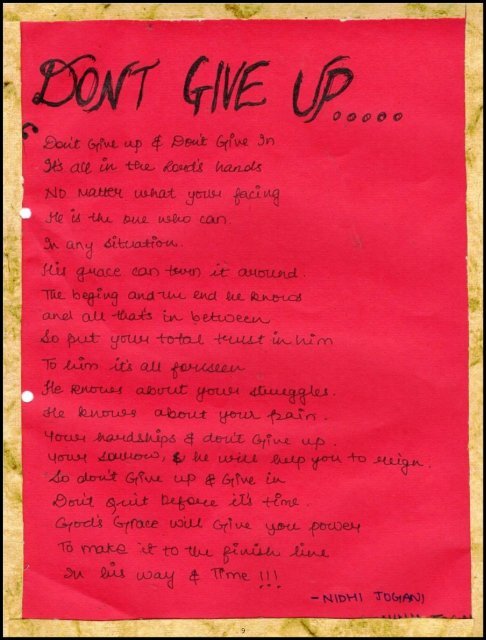 DON'T GIVE UP.....
Don't Give up & Don't Give In
It's all in the Lord's hands
No matter what your facing
He is the one who can
In any situation.
His grace can turn it around.
The beging and the end he knows
and all that's in between
So put your total trust in him
To him it's all forseen
He knows about your struggles.
He knows about your pain.
Your hardships & don't Give up.
your sorrow, & he will help you to reign.
So don't Give up & Give in
Don't Quit before it's time.
God's Grace will Give you power
To make it to the finish line
In his way & Time !!!
- NIDHI JOGANI
9